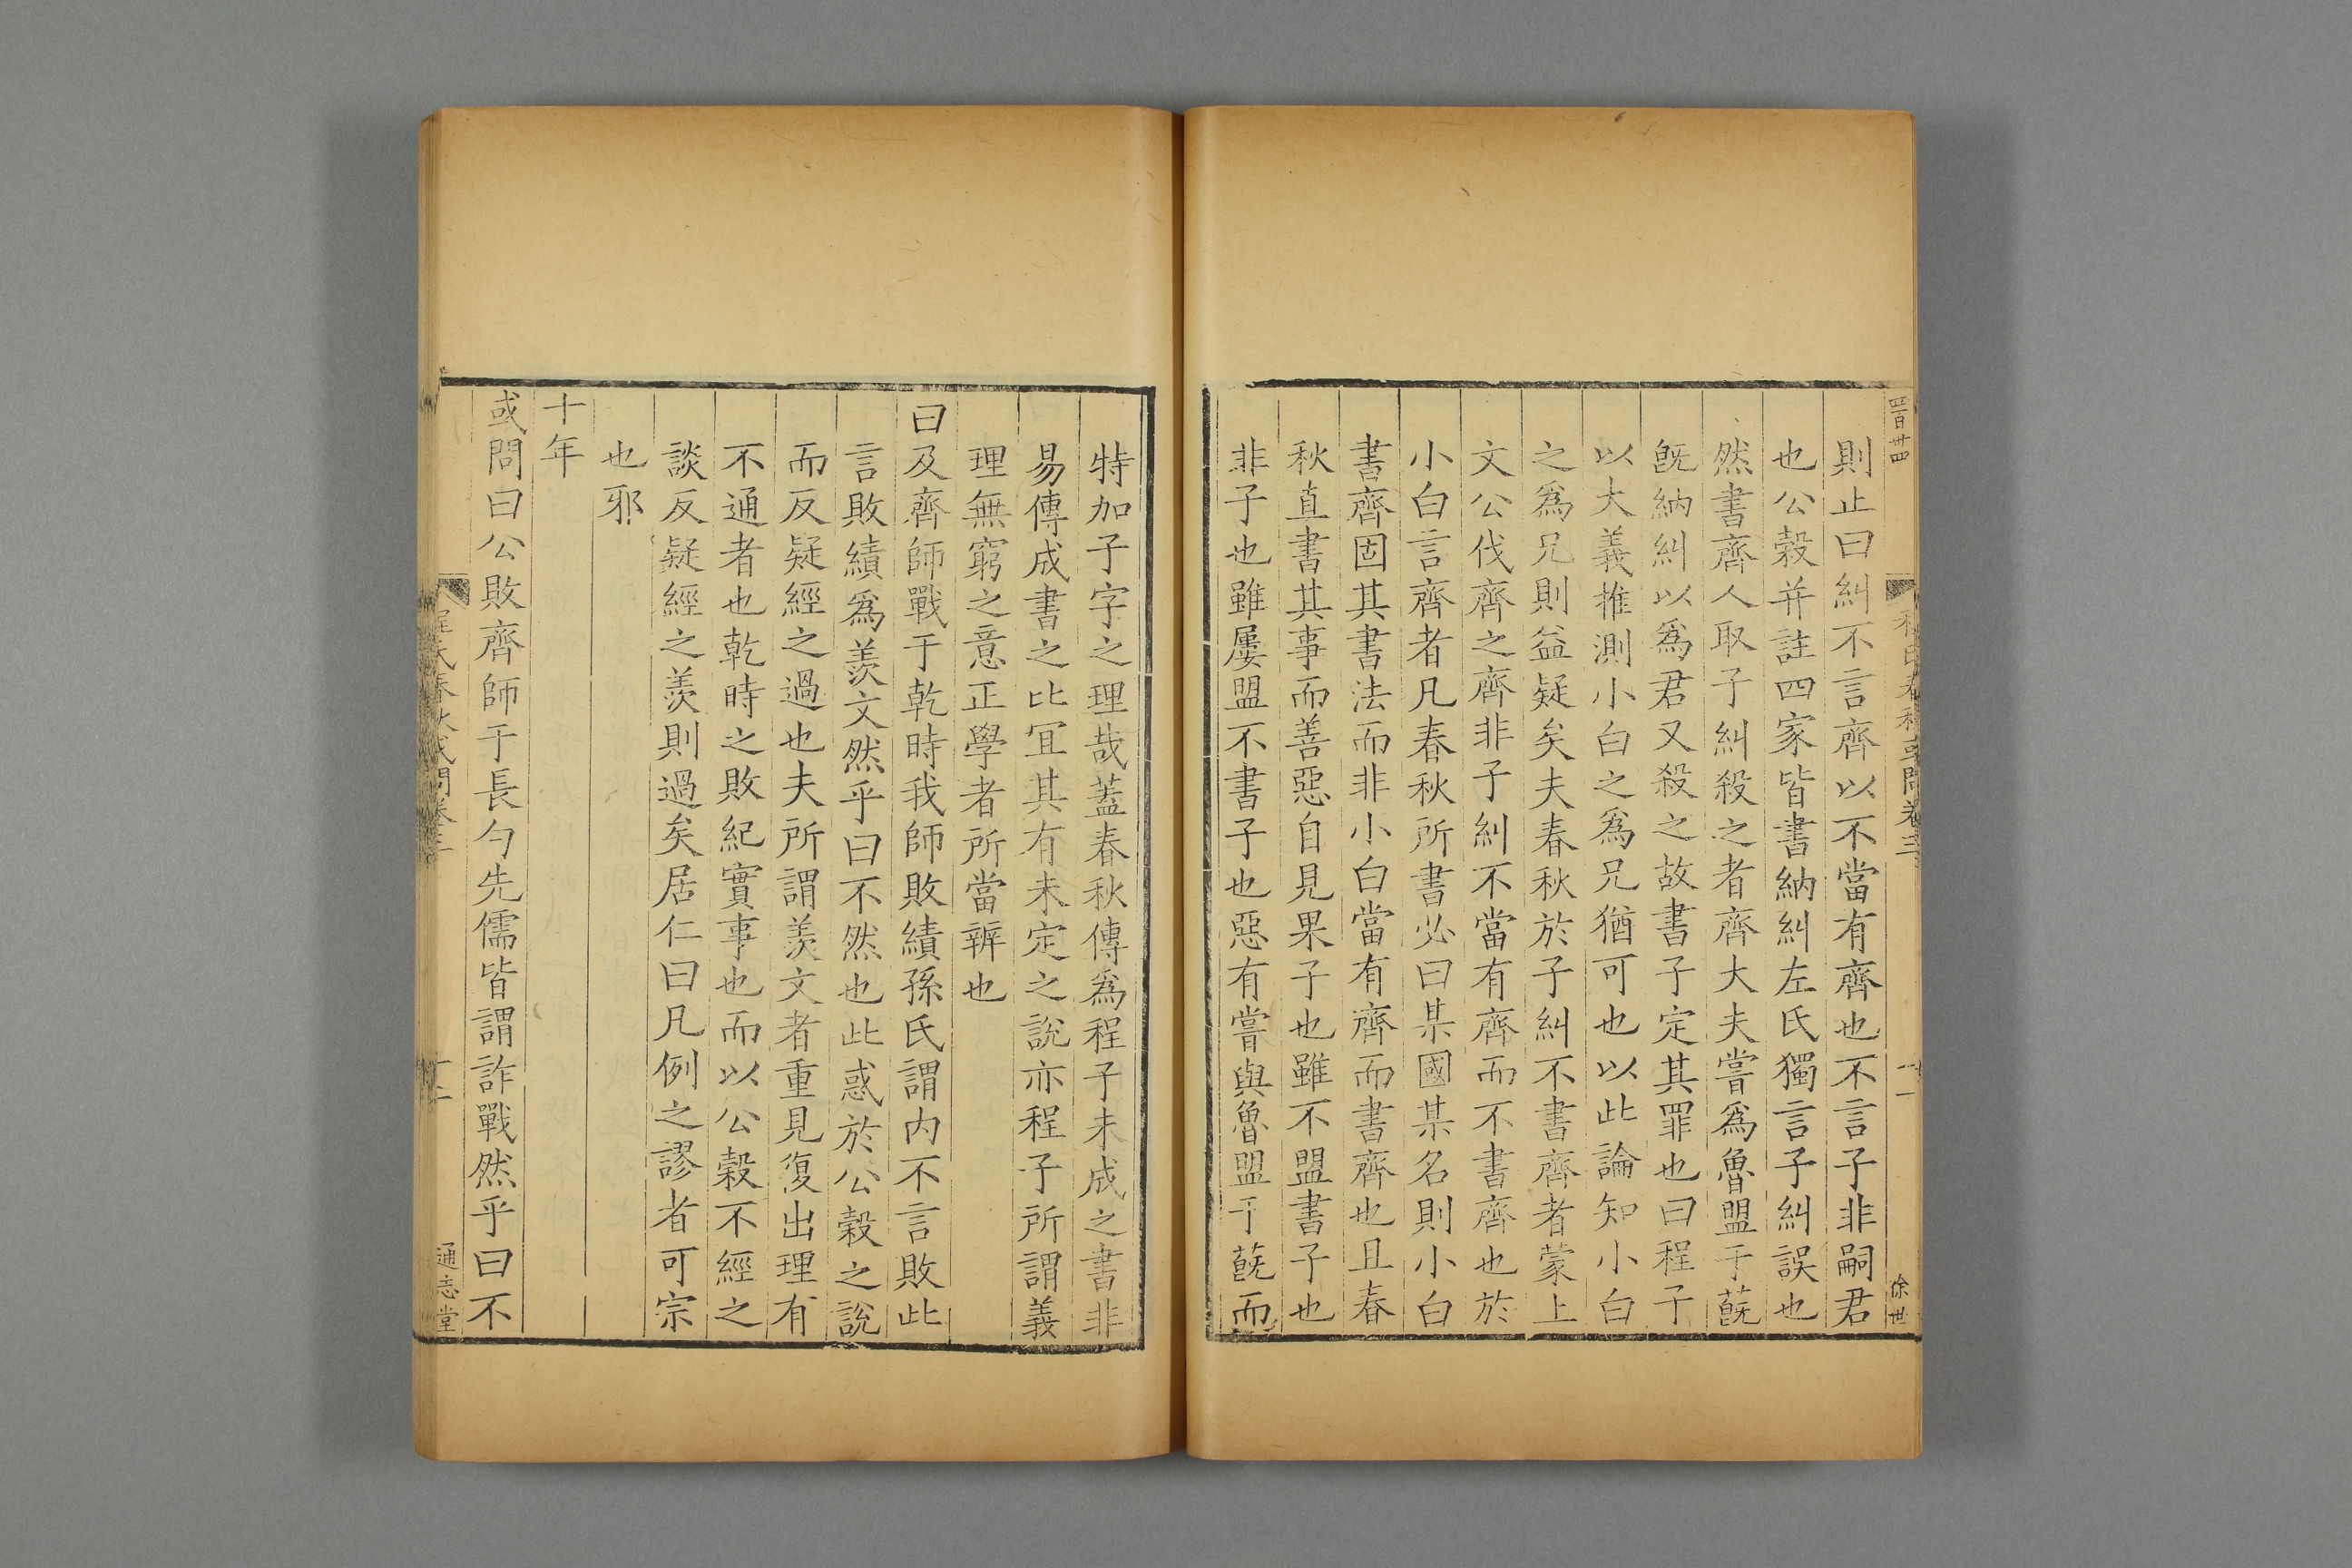 四百卅四
程氏春秋或問卷三
十一
徐世
則止曰糾不言齊以不當有齊也不言子非嗣君
也公榖并註四家皆書納糾左氏獨言子糾誤也
然書齊人取子糾殺之者齊大夫嘗爲魯盟于蔇
旣納糾以爲君又殺之故書子定其罪也曰程子
以大義推測小白之爲兄猶可也以此論知小白
之爲兄則益疑矣夫春秋於子糾不書齊者蒙上
文公伐齊之齊非子糾不當有齊而不書齊也於
小白言齊者凡春秋所書必曰某國某名則小白
書齊固其書法而非小白當有齊而書齊也且春
秋直書其事而善惡自見果子也雖不盟書子也
非子也雖屢盟不書子也惡有嘗與魯盟于蔇而
特加子字之理哉蓋春秋傳爲程子未成之書非
易傳成書之比冝其有未定之說亦程子所謂義
理無窮之意正學者所當辨也
曰及齊師戰于乾時我師敗績孫氏謂内不言敗此
言敗績爲羡文然乎曰不然也此惑於公榖之說
而反疑經之過也夫所謂羡文者重見復出理有
不通者也乾時之敗紀實事也而以公榖不經之
談反疑經之羡則過矣居仁曰凡例之謬者可宗
也邪
十年
或問曰公敗齊師于長勺先儒皆謂詐戰然乎曰不
程氏春秋或問卷三
十二
通志堂